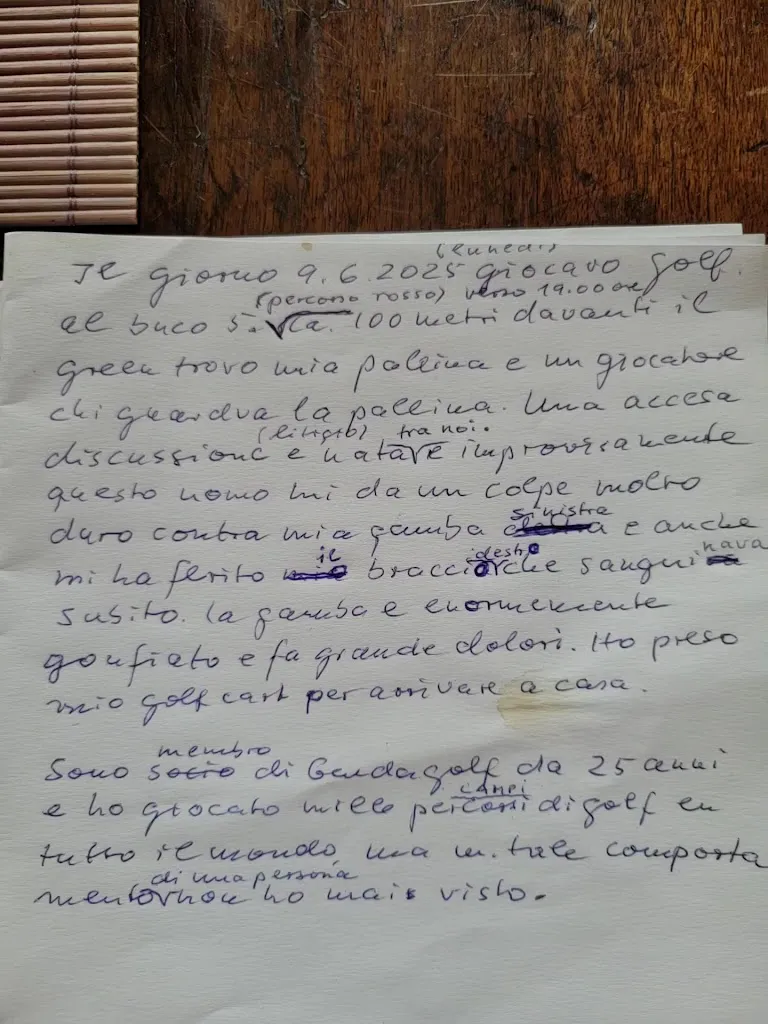 (lunnedi)
Il giorno 9.6.2025 giocavo golf.
(percorso rosso) verso 19.00 ore
al buco 5. ca. 100 metri davanti il
green trovo mia pallina e un giocatore
chi guardva la pallina. Una accesa
(littigio) tra noi.
discussione e natare improvisamente
questo uomo mi da un colpe molto
sinistra
duro contra mia gamba destra e anche
il destro nava
mi ha ferito mio braccio che sangui
subito. la gamba e enormemente
gonfiato e fa grande dolori. Ho preso
mio golf cart per arrivare a casa.
membro
Sono socio di Gardagolf da 25 anni
campi
e ho giocato mille percorsi di golf en
tutto il mondo, ma un tale comporta
di una persona
mento non ho mai visto.